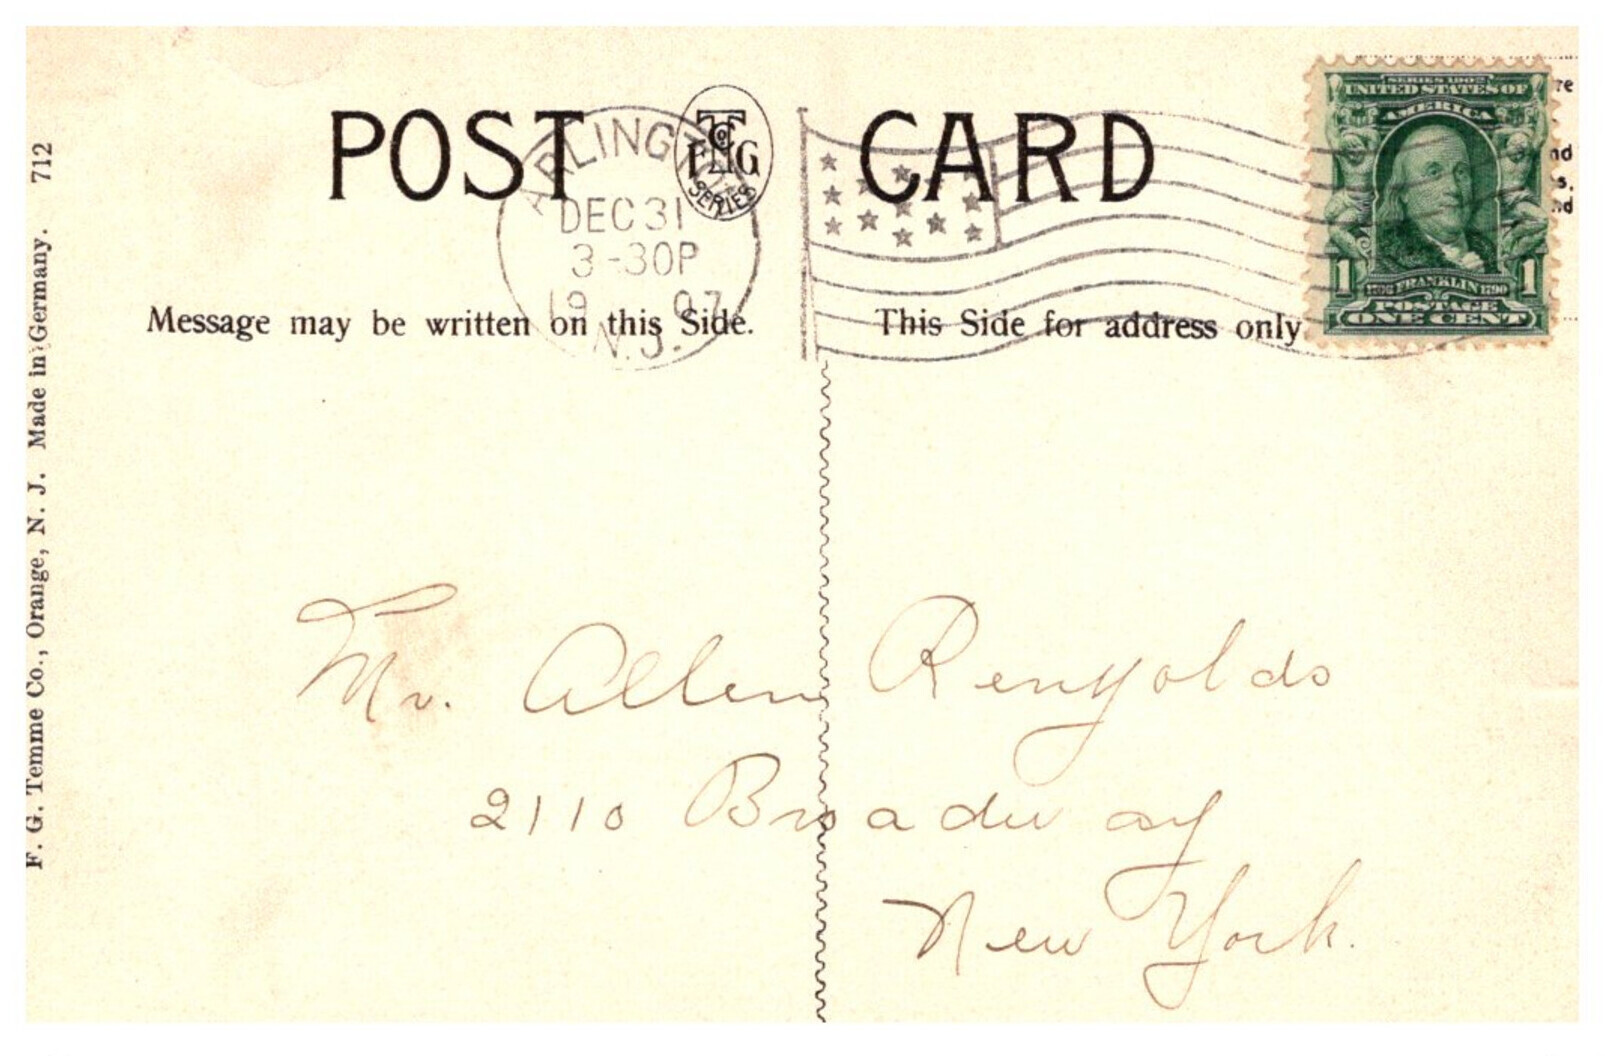 POST CARD
F T Co G
SERIES
ARLINGTON
DEC 31
3-30P
19 07
N.J.
SERIES 1902
UNITED STATES OF
AMERICA
1706 FRANKLIN 1790
1 1
POSTAGE
ONE CENT
re
nd
s,
nd
Message may be written on this Side.
This Side for address only
Mr. Allen Renyolds
2110 Broadway
New York.
F. G. Temme Co., Orange, N. J. Made in Germany. 712